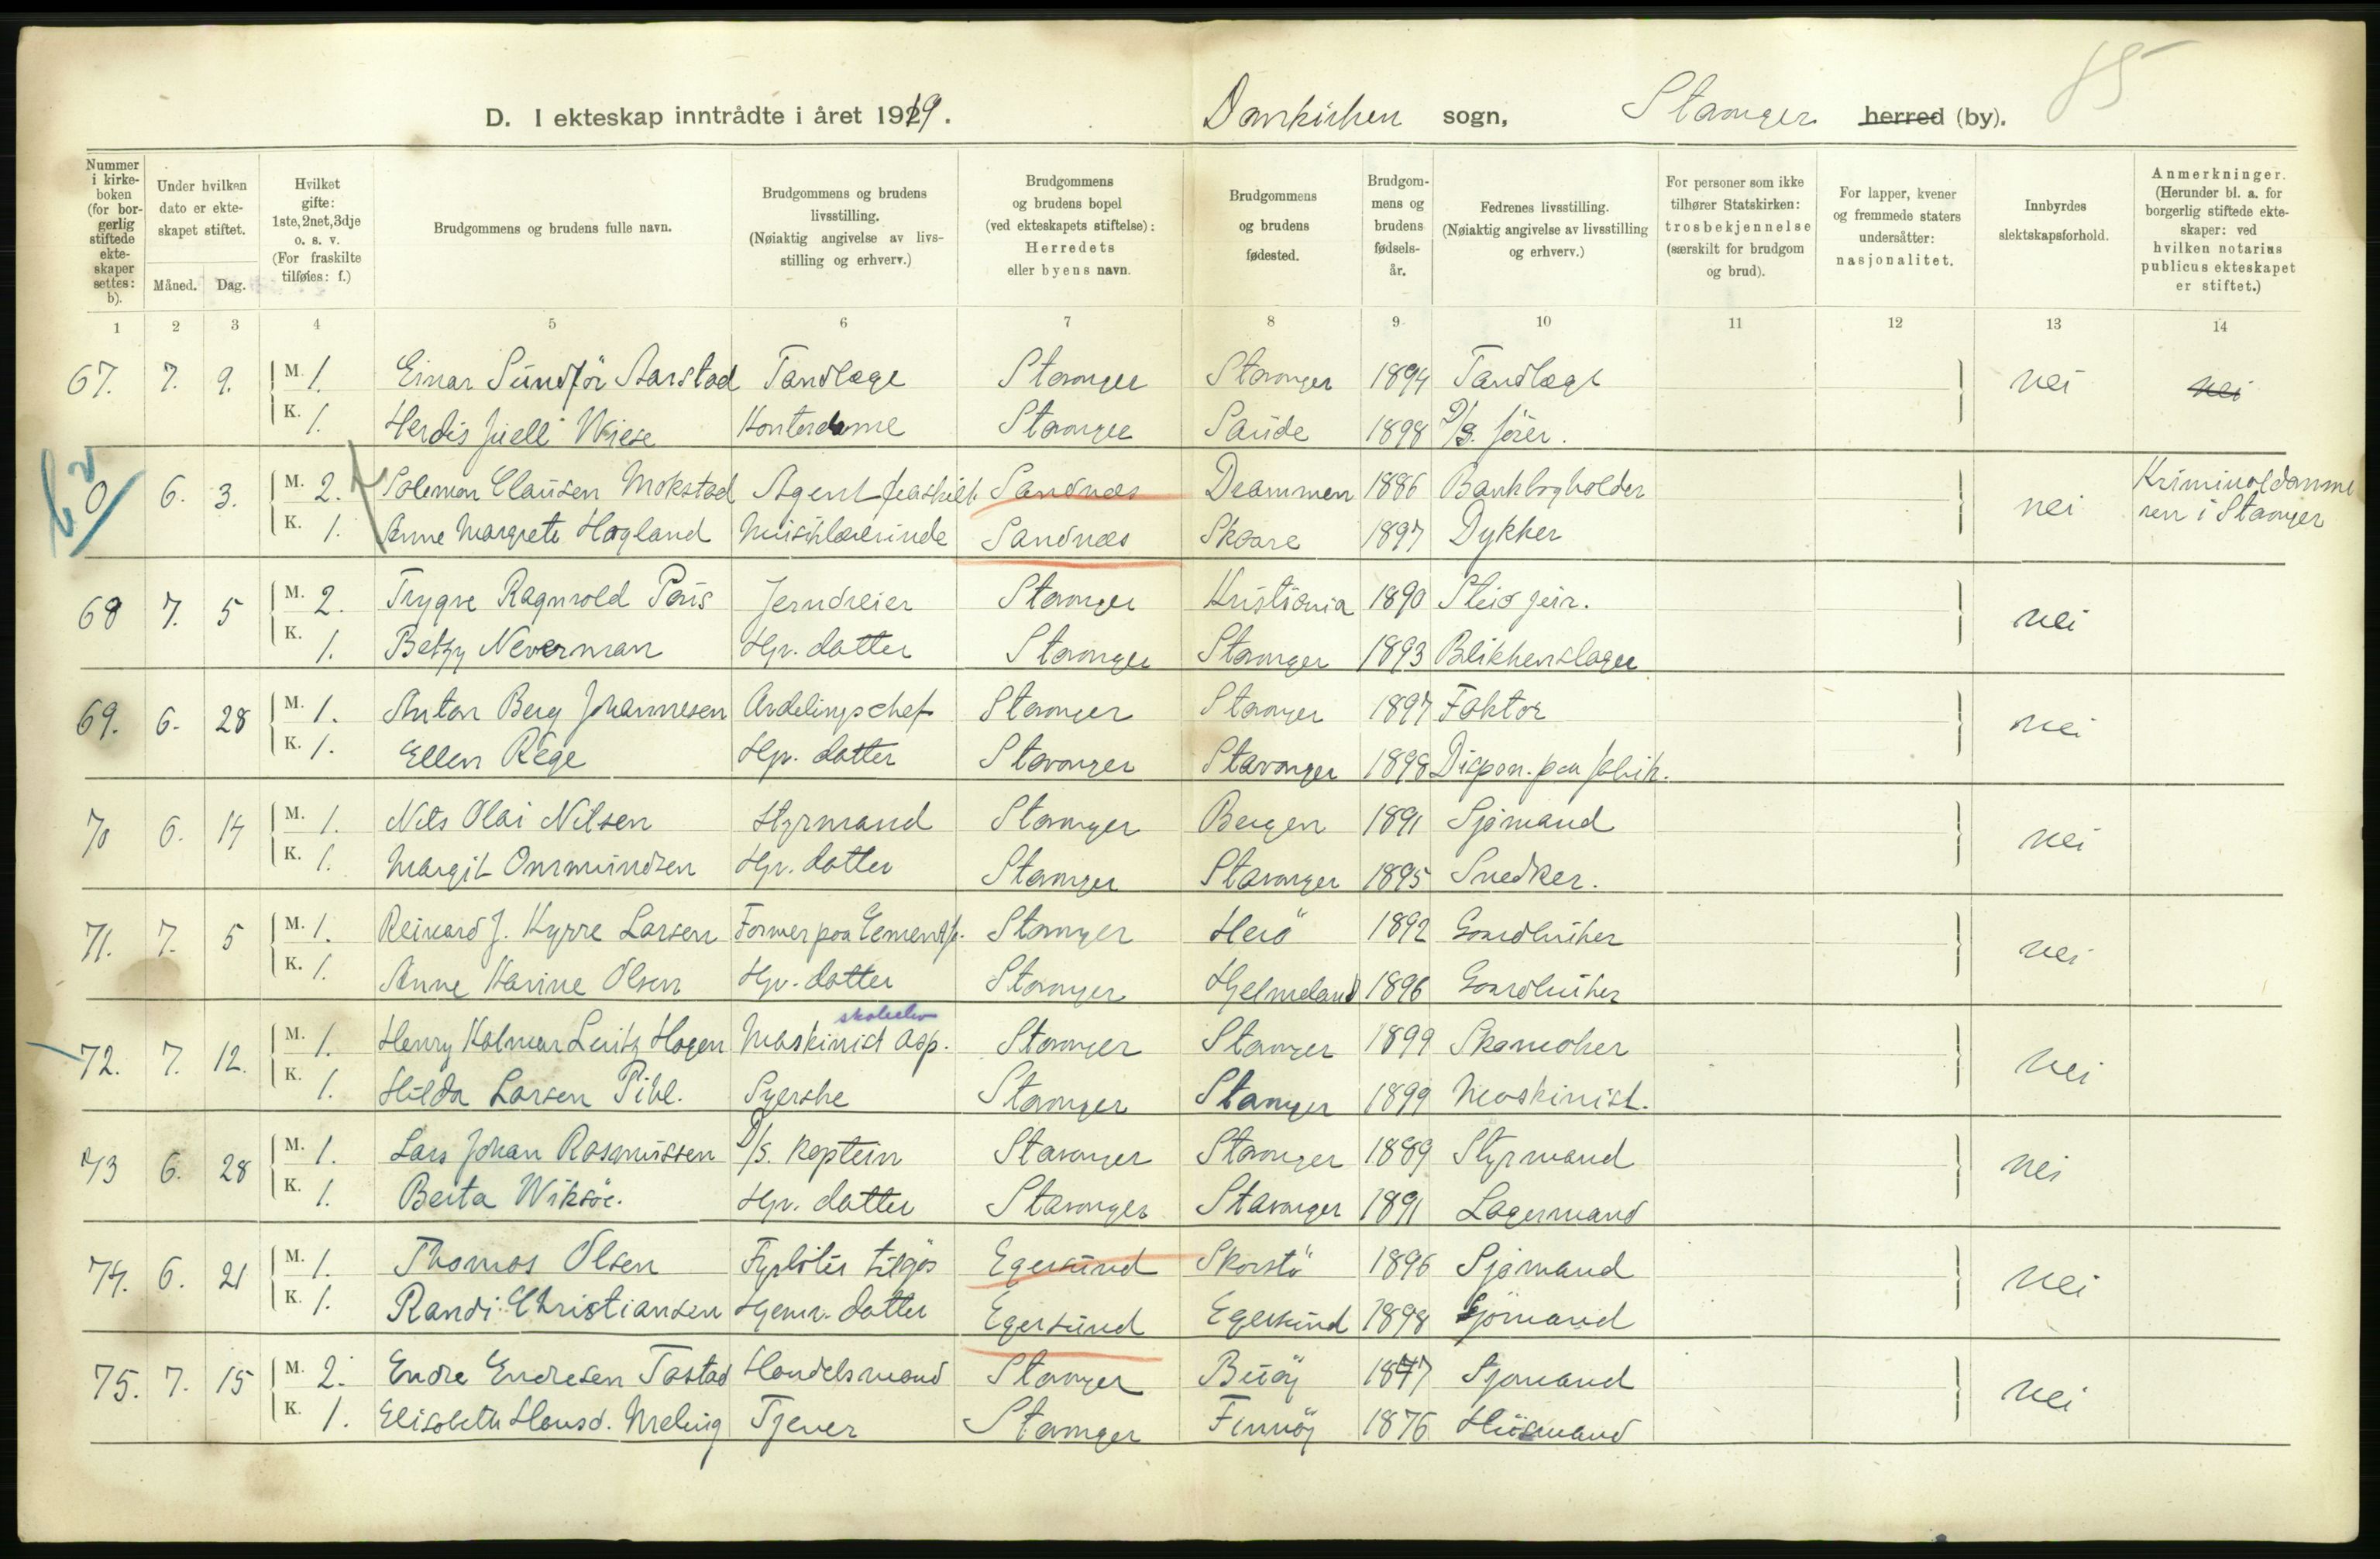 85
D. I ekteskap inntrådte i året 1919. Domkirken sogn, Stavanger herred (by).
Nummer i kirkeboken (for borgerlig stiftede ekteskaper settes: b).
Under hvilken dato er ekteskapet stiftet.
Måned. Dag.
Hvilket gifte: 1ste, 2net, 3dje o. s. v. (For fraskilte tilføies: f.)
Brudgommens og brudens fulle navn.
Brudgommens og brudens livsstilling. (Nøiaktig angivelse av livsstilling og erhverv.)
Brudgommens og brudens bopel (ved ekteskapets stiftelse): Herredets eller byens navn.
Brudgommens og brudens fødested.
Brudgommens og brudens fødselsår.
Fedrenes livsstilling. (Nøiaktig angivelse av livsstilling og erhverv.)
For personer som ikke tilhører Statskirken: trosbekjennelse (særskilt for brudgom og brud).
For lapper, kvener og fremmede staters undersåtter: nasjonalitet.
Innbyrdes slektskapsforhold.
Anmerkninger. (Herunder bl. a. for borgerlig stiftede ekteskaper: ved hvilken notarius publicus ekteskapet er stiftet.)
1 2 3 4 5 6 7 8 9 10 11 12 13 14
67. 7. 9. M. 1. Einar Sundför Aarstad Tandlæge Stavanger Stavanger 1894 Tandlæge nei nei
K. 1. Herdis Juell Wiese Kontordame Stavanger Saude 1898 D/S. förer.
6. 3. M. 2. Salomon Clausen Mokstad Agent fraskilt Sandnæs Drammen 1886 Bankbogholder nei Kriminaldomme
K. 1. Anne Margrete Hagland Musiklærerinde Sandnæs Skaare 1897 Dykker ren i Stavanger
68 7. 5 M. 2. Trygve Ragnvald Jerndreier Stavanger Kristiania 1890 nei
K. 1. Betzy Neverman Hjv. datter Stavanger Stavanger 1893 Blikkenslager
69. 6. 28 M. 1. Anton Berg Johannesen Avdelingschef Stavanger Stavanger 1897 Faktor nei
K. 1. Ellen Rege Hjv. datter Stavanger Stavanger 1898 Dispon. paa fabrik.
70 6. 14 M. 1. Nils Olai Nilsen Styrmand Stavanger Bergen 1891 Sjömand nei
K. 1. Margit Ommundsen Hjv. datter Stavanger Stavanger 1895 Snedker.
71. 7. 5 M. 1. Reinard J. Kyrre Larsen Former paa Stavanger Herö 1892 Gaardbruker nei
K. 1. Anne Karine Olsen Hjv. datter Stavanger Hjelmeland 1896 Gaardbruker
skoleelev
72. 7. 12. M. 1. Henry Halmar Hagen Maskinist asp. Stavanger Stavanger 1899 Skomaker nei
K. 1. Hilda Larsen Pihl. Syerske Stavanger Stavanger 1899 Maskinist.
73 6. 28 M. 1. Lars Johan Rasmussen D/S. kaptein Stavanger Stavanger 1889 Styrmand nei
K. 1. Berta Wiksöe. Hjv. datter Stavanger Stavanger 1891 Lagermand
74. 6. 21 M. 1. Thomas Olsen Fyrböter tilsjös Egersund 1896 Sjömand nei
K. 1. Randi Christiansen Hjemv. datter Egersund Egersund 1898 Sjömand
75. 7. 15 M. 2. Endre Endresen Tastad Handelsmand Stavanger Buöy 1877 Sjömand nei
K. 1. Elisabeth Hansd. Meling Tjener Stavanger Finnöy 1876 Husmand